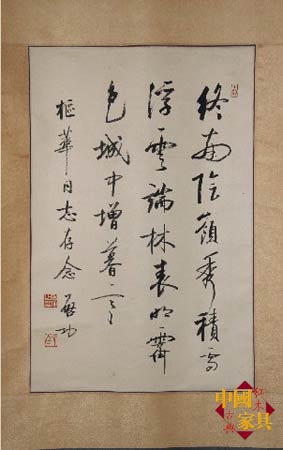 終南陰嶺秀積雪
浮雲端林表明霽
色城中增暮寒
樞華同志存念 啟功
中國紅木
古典家具